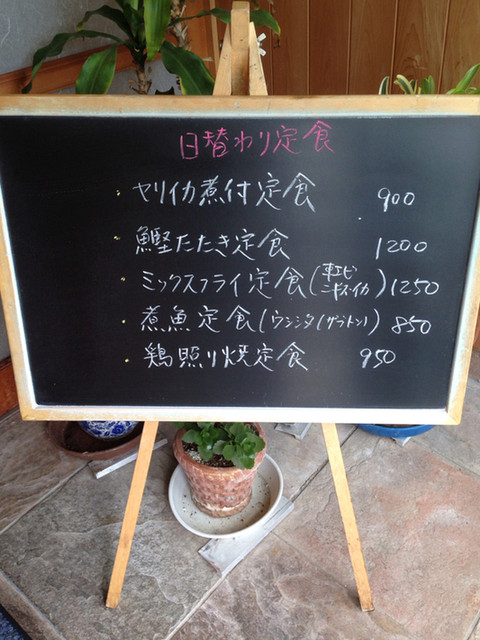 日替わり定食
ヤリイカ煮付定食 900
鰹たたき定食 1200
ミックスフライ定食(車エビ ニギス・イカ) 1250
煮魚定食(ウシシタ(ザブトン) 850
鶏照り焼定食 950